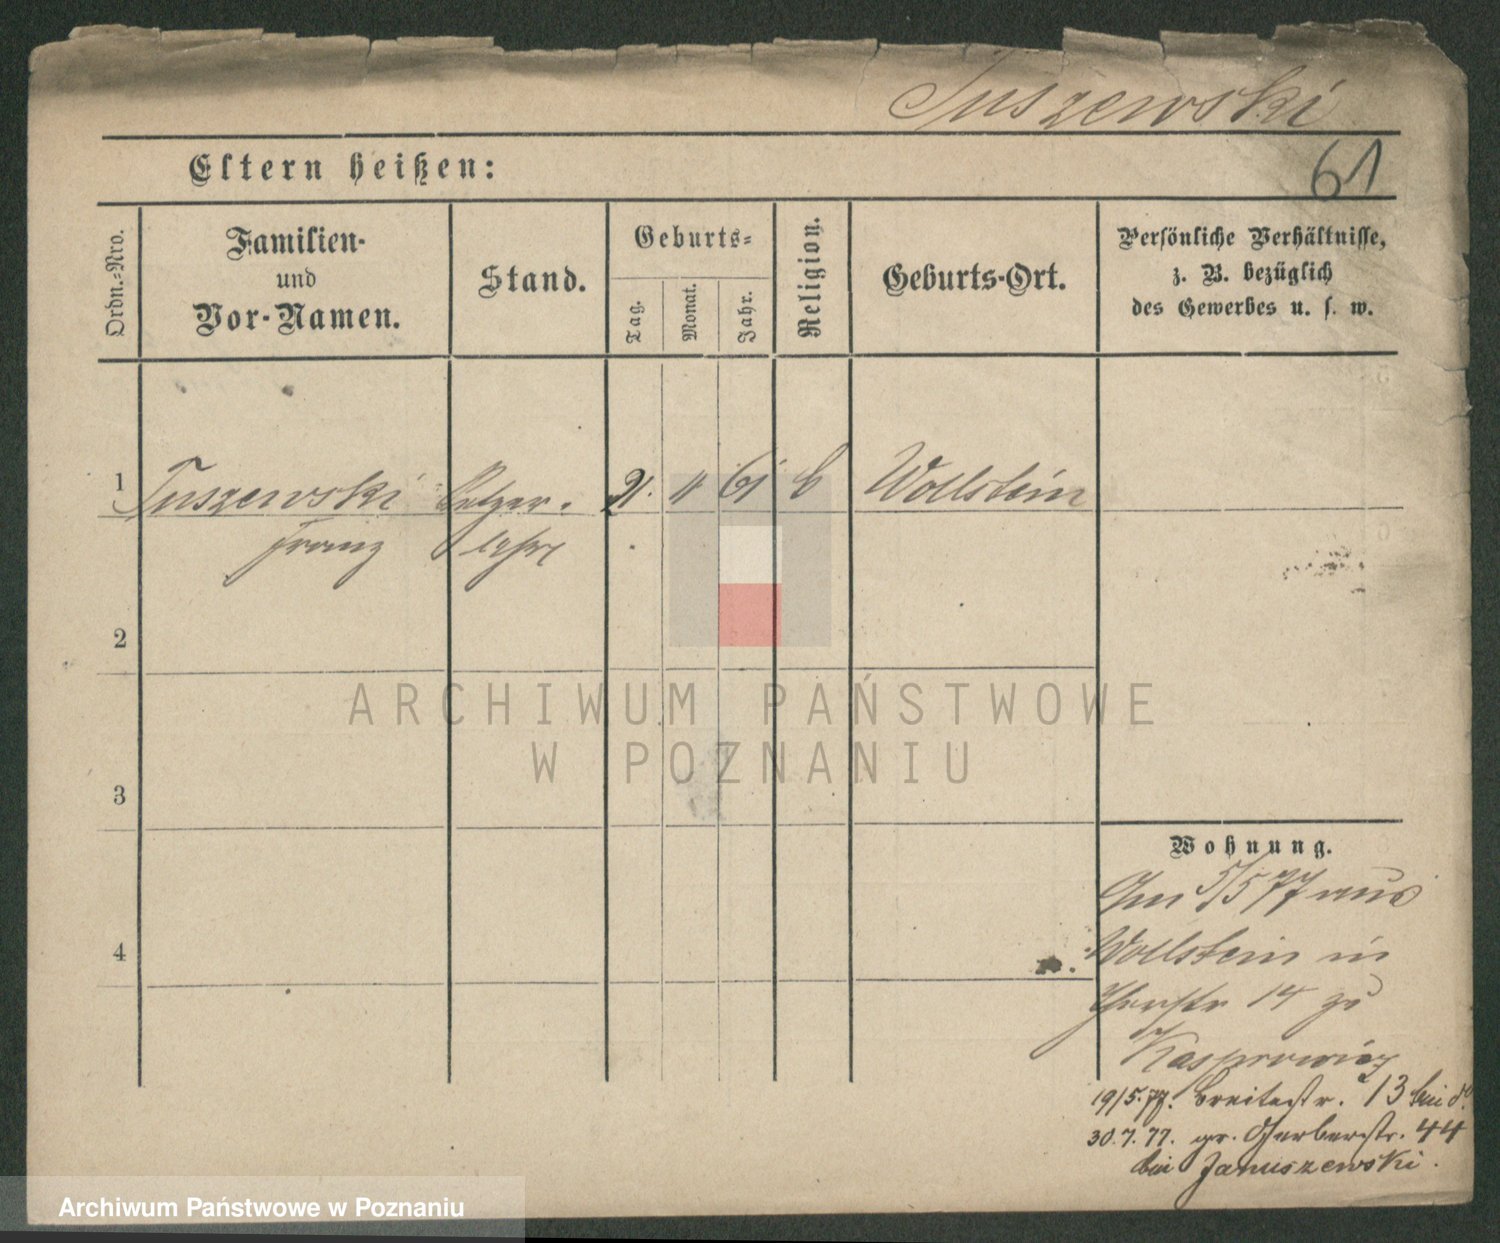 Tuszewski
Eltern heißen:
61
Ordn.-Nro.
Familien-
und
Vor-Namen.
Stand.
Geburts-
Tag.
Monat.
Jahr.
Religion.
Geburts-Ort.
Persönliche Verhältnisse,
z. B. bezüglich
des Gewerbes u. s. w.
1
Tuszewski
21. 11 61
Wollstein
Franz
2
3
4
ARCHIWUM PAŃSTWOWE
W POZNANIU
Wohnung.
5/5 77 aus
Wollstein in
14 zu
Kasprowicz
19/5.77. Breitestr. 13 bei do.
30.7.77. gr. Gerberstr. 44
bei Januszewski.
Archiwum Państwowe w Poznaniu